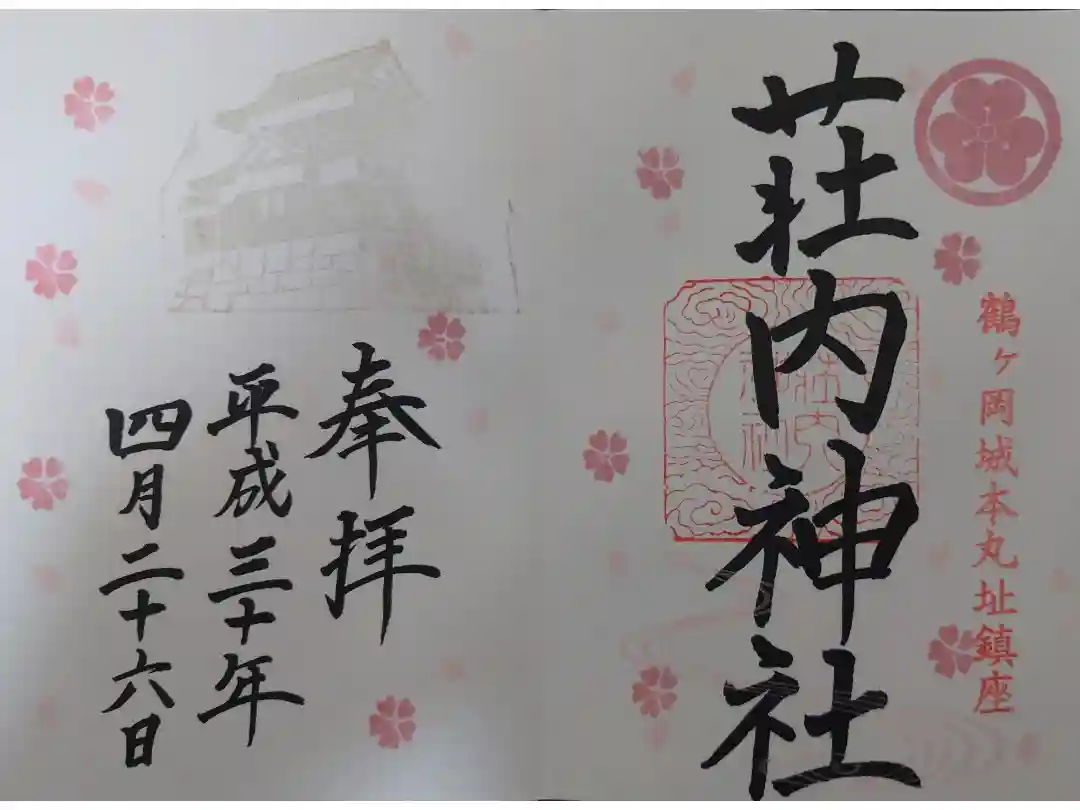 鶴ヶ岡城本丸址鎮座
荘内神社
奉拝
平成三十年
四月二十六日